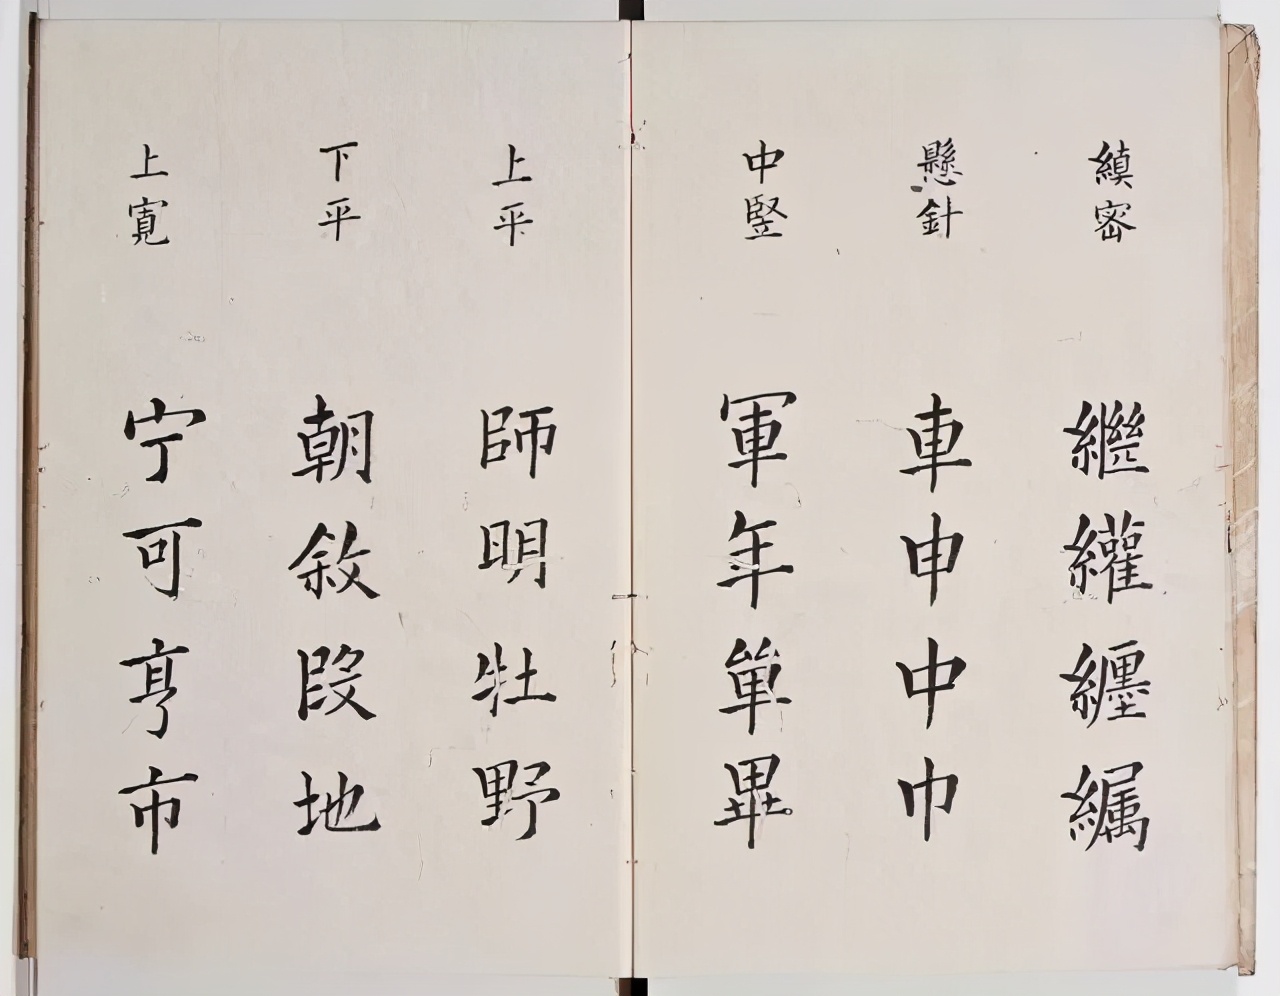 縝密
繼纏
懸針
車申中巾
中竪
軍年單畢
上平
師明牡野
下平
朝敘段地
上寬
宁可亨市